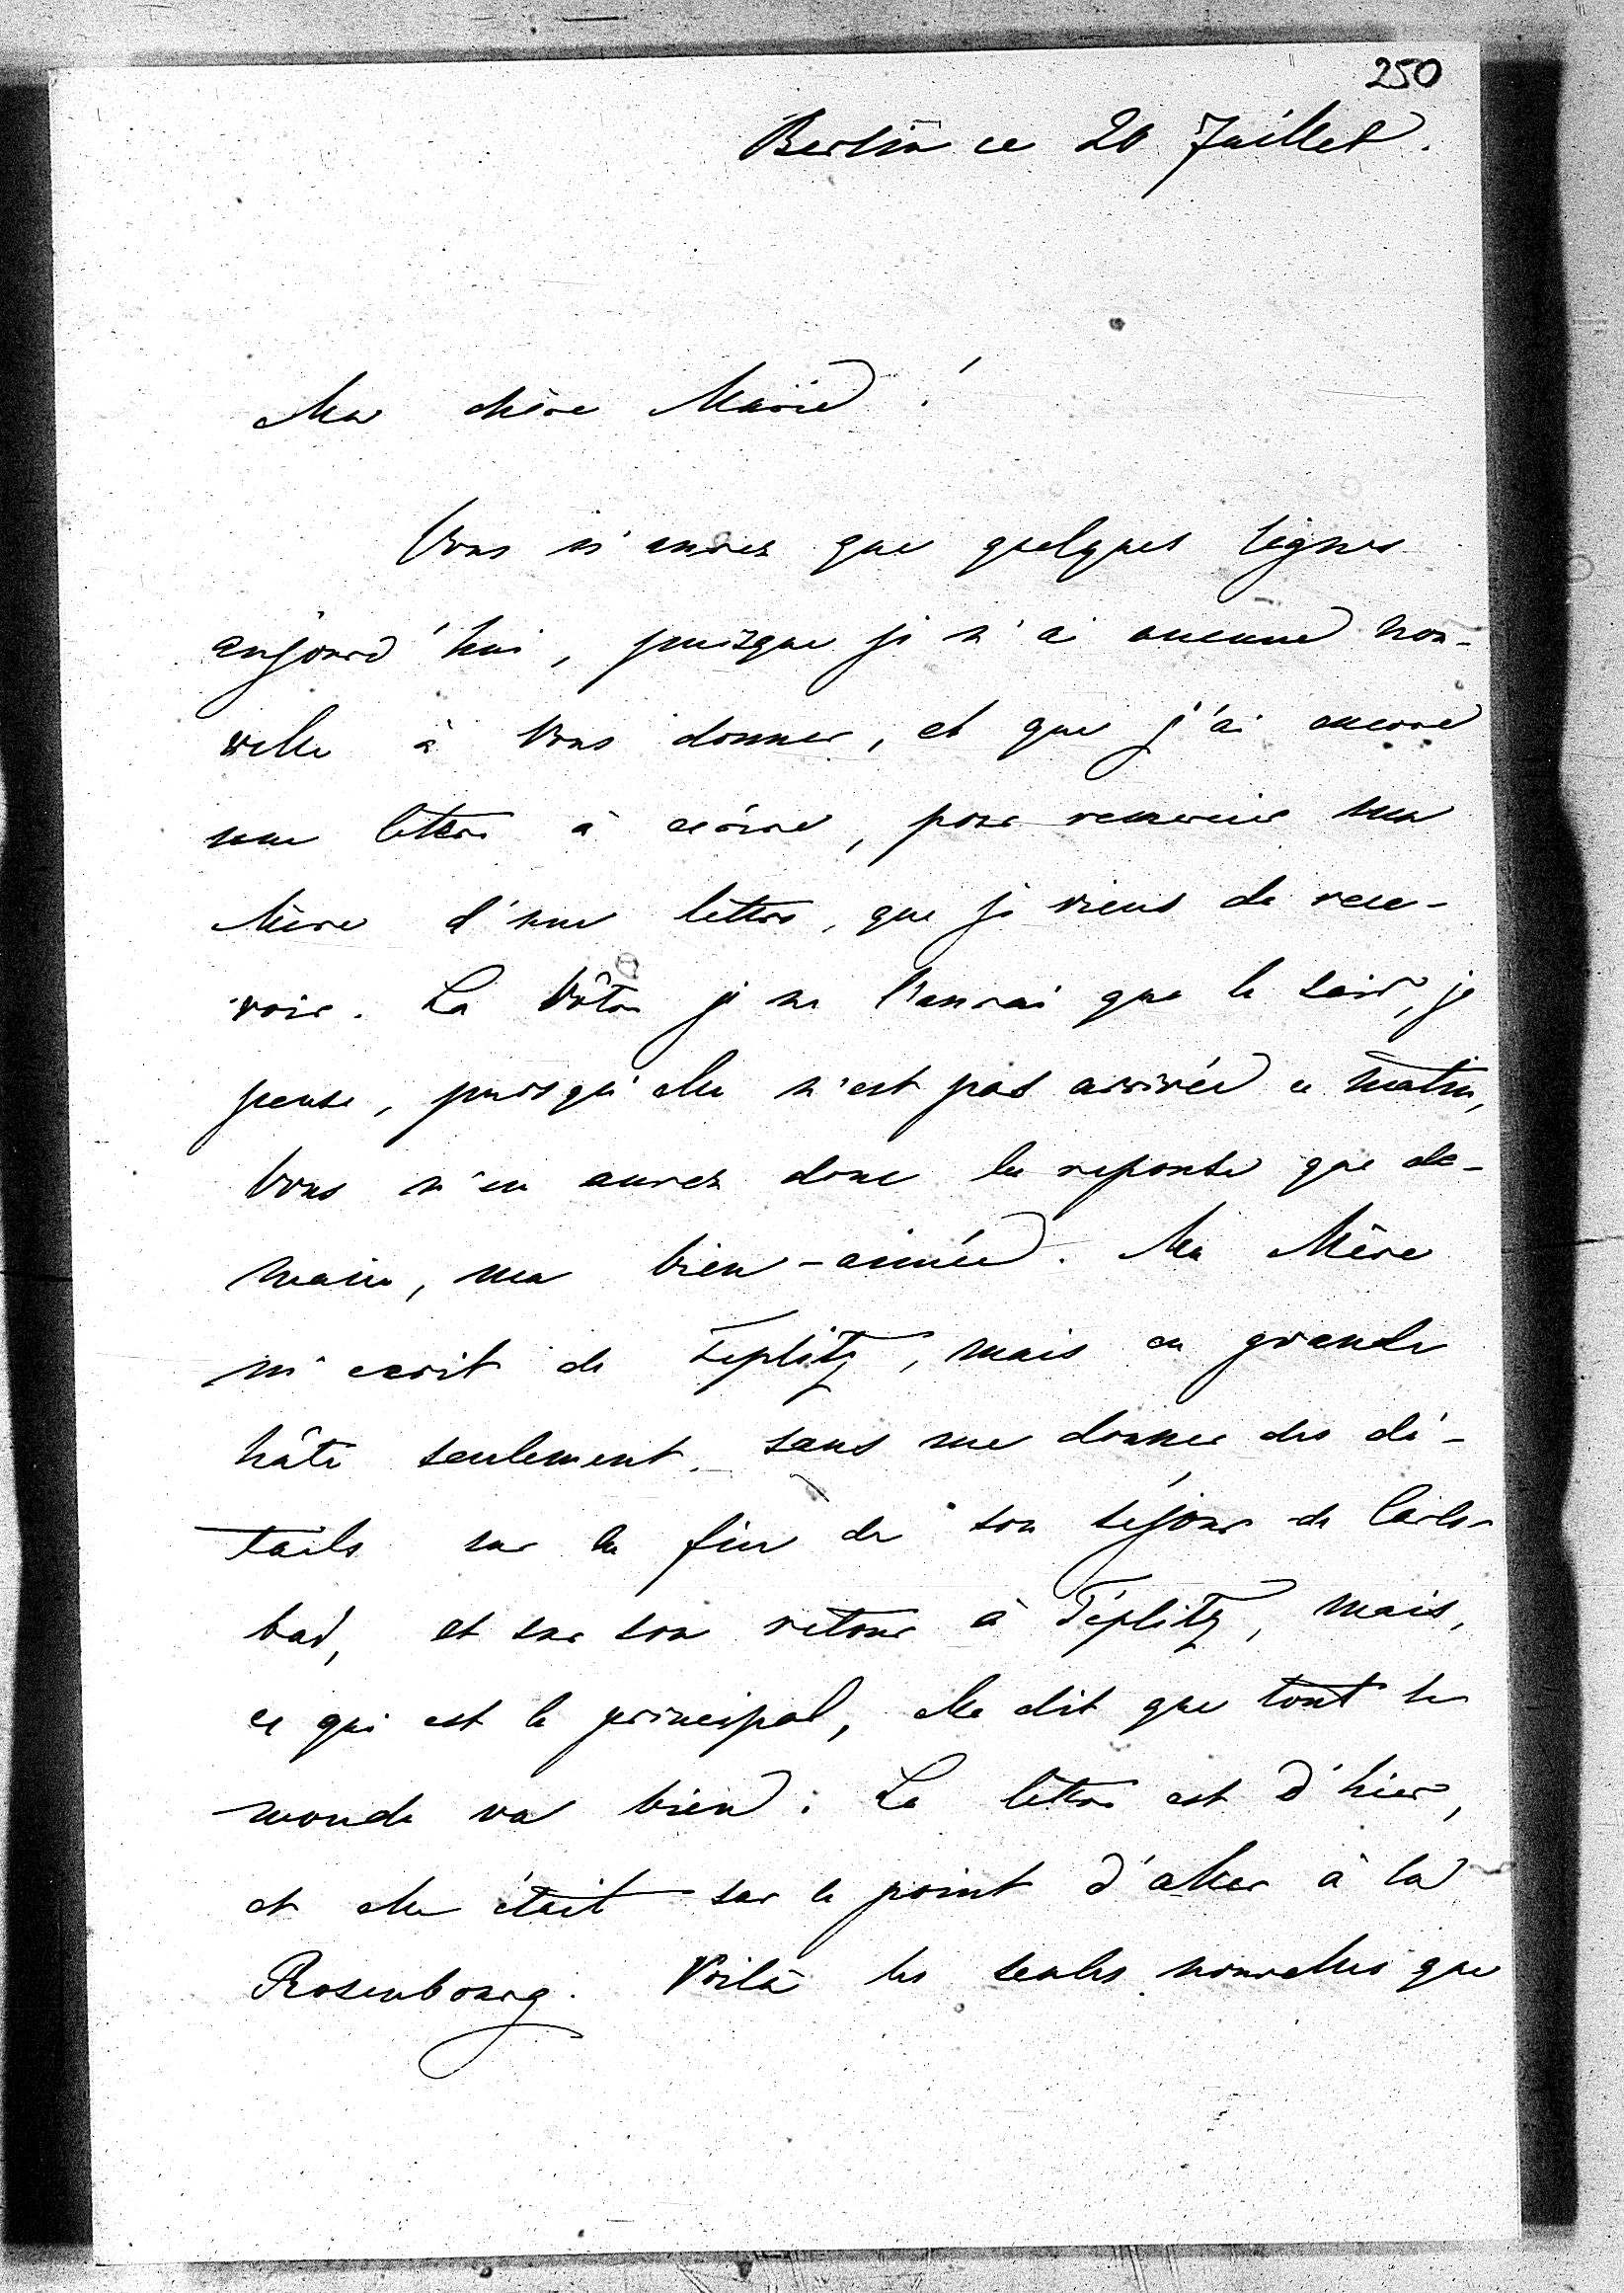 250
Berlin ce 20 Juillet.
Ma chère Marie !
Vous n'aurez que quelques lignes
aujourd'hui, puisque je n'ai aucune nou-
velle à Vous donner, et que j'ai encore
une lettre à écrire, pour remercier ma
Mère d'une lettre, que je viens de rece-
voir. La Vôtre je ne l'aurai que le soir, je
pense, puisqu'elle n'est pas arrivée ce matin,
Vous n'en aurez donc la reponse que de-
main, ma bien-aimée. Ma Mère
m'ecrit de Téplitz, mais en grande
hâte seulement, sans me donner des dé-
tails sur la fin de son séjour de Carls-
bad, et sur son retour à Téplitz, mais,
ce qui est le principal, elle dit que tout le
monde va bien. La lettre est d'hier,
et elle était sur le point d'aller à la
Rosenbourg. Voilà les seules nouvelles que